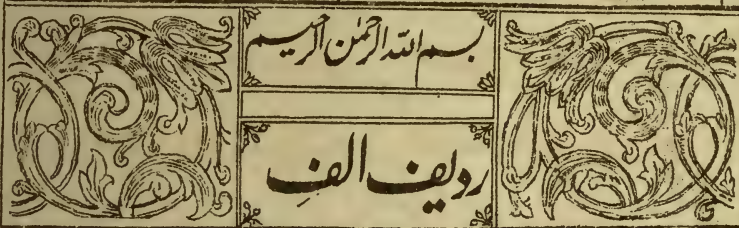 بسم اللہ الرحمٰن الرحیم
ردیف الف